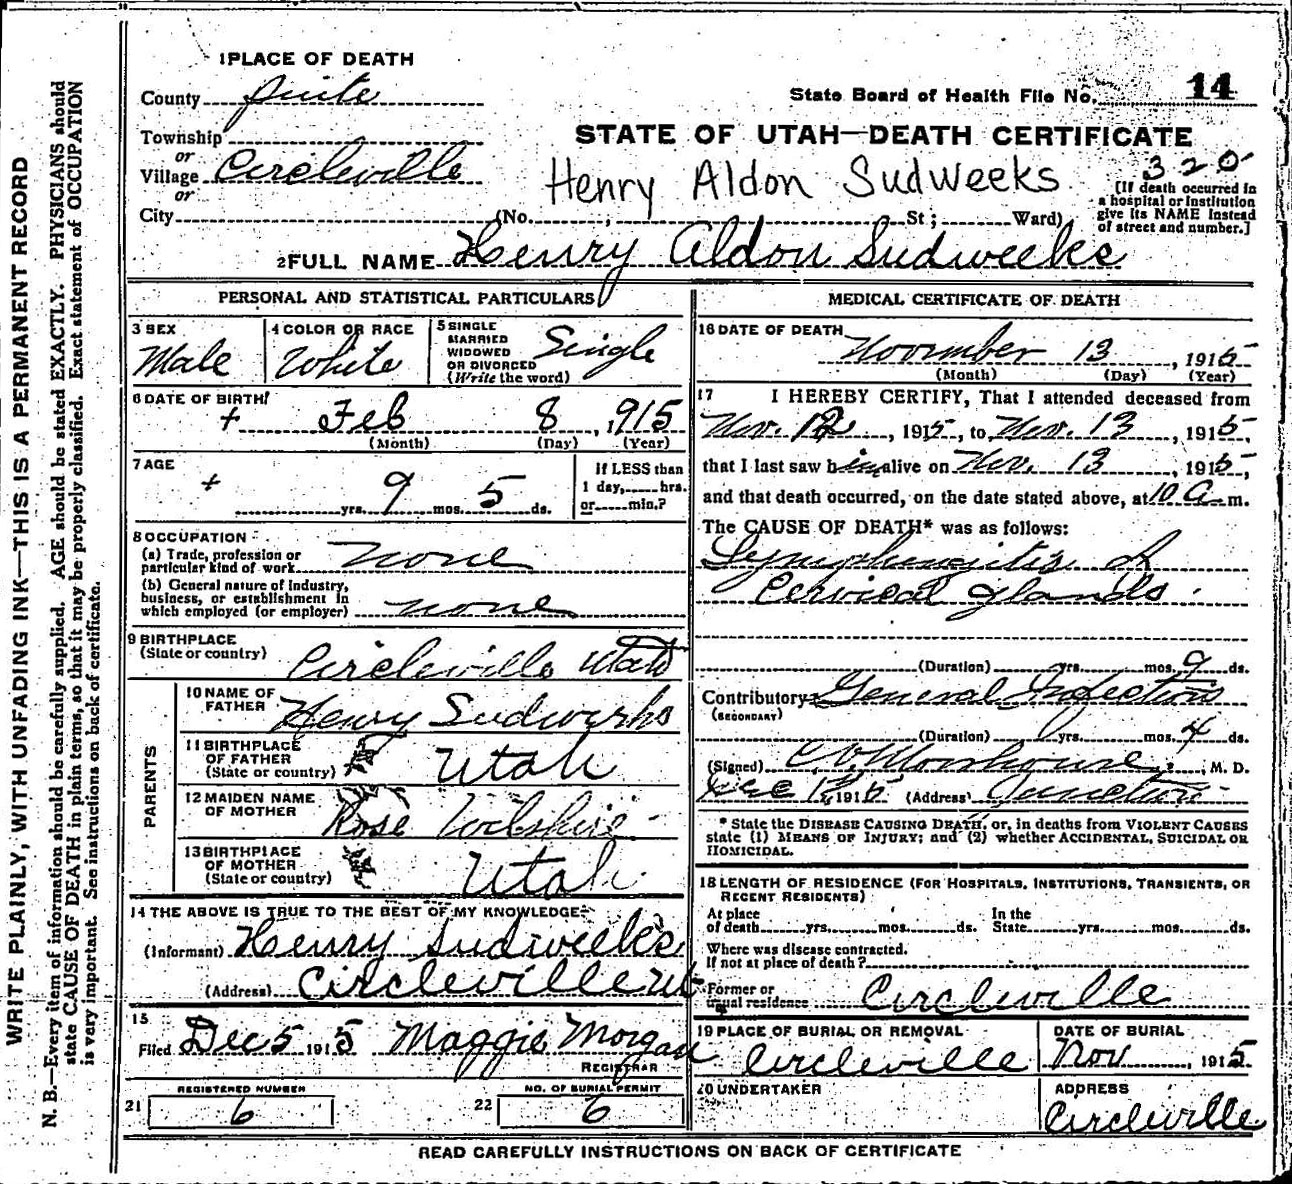 WRITE PLAINLY, WITH UNFADING INK—THIS IS A PERMANENT RECORD
N. B.—Every item of information should be carefully supplied. AGE should be stated EXACTLY. PHYSICIANS should
state CAUSE OF DEATH in plain terms, so that it may be properly classified. Exact statement of OCCUPATION
is very important. See instructions on back of certificate.
1 PLACE OF DEATH
County Piute
State Board of Health File No. 14
Township
or
Village Circleville
or
City (No. , St; Ward)
STATE OF UTAH—DEATH CERTIFICATE
320
Henry Aldon Sudweeks
[If death occurred in
a hospital or institution
give its NAME instead
of street and number.]
2 FULL NAME Henry Aldon Sudweeks
PERSONAL AND STATISTICAL PARTICULARS
3 SEX
Male
4 COLOR OR RACE
White
5 SINGLE
MARRIED
WIDOWED
OR DIVORCED
(Write the word)
Single
6 DATE OF BIRTH
+ Feb 8, 1915
(Month) (Day) (Year)
7 AGE
+ yrs. 9 mos. 5 ds.
If LESS than
1 day, hrs.
or min.?
8 OCCUPATION
(a) Trade, profession or
particular kind of work none
(b) General nature of industry,
business, or establishment in
which employed (or employer) none
9 BIRTHPLACE
(State or country) Circleville Utah
PARENTS
10 NAME OF
FATHER Henry Sudweeks
11 BIRTHPLACE
OF FATHER
(State or country) Utah
12 MAIDEN NAME
OF MOTHER Rose Wilshire
13 BIRTHPLACE
OF MOTHER
(State or country) Utah
14 THE ABOVE IS TRUE TO THE BEST OF MY KNOWLEDGE
(Informant) Henry Sudweeks
(Address) Circleville Ut
15
Filed Dec 5 1915 Maggie Morgan
REGISTRAR
REGISTERED NUMBER
21 6
NO. OF BURIAL PERMIT
22 6
MEDICAL CERTIFICATE OF DEATH
16 DATE OF DEATH
November 13, 1915
(Month) (Day) (Year)
17 I HEREBY CERTIFY, That I attended deceased from
Nov. 12, 1915, to Nov. 13, 1915,
that I last saw him alive on Nov. 13, 1915,
and that death occurred, on the date stated above, at 10 A m.
The CAUSE OF DEATH* was as follows:
of
Cervical glands
(Duration) yrs. mos. 9 ds.
Contributory General Infection
(SECONDARY)
(Duration) yrs. mos. 4 ds.
(Signed) M. D.
1915 (Address) Junction
* State the DISEASE CAUSING DEATH, or, in deaths from VIOLENT CAUSES
state (1) MEANS OF INJURY; and (2) whether ACCIDENTAL, SUICIDAL OR
HOMICIDAL.
18 LENGTH OF RESIDENCE (FOR HOSPITALS, INSTITUTIONS, TRANSIENTS, OR
RECENT RESIDENTS)
At place
of death yrs. mos. ds.
In the
State yrs. mos. ds.
Where was disease contracted.
If not at place of death?
Former or
usual residence Circleville
19 PLACE OF BURIAL OR REMOVAL
Circleville
DATE OF BURIAL
Nov , 1915
20 UNDERTAKER
ADDRESS
Circleville
READ CAREFULLY INSTRUCTIONS ON BACK OF CERTIFICATE